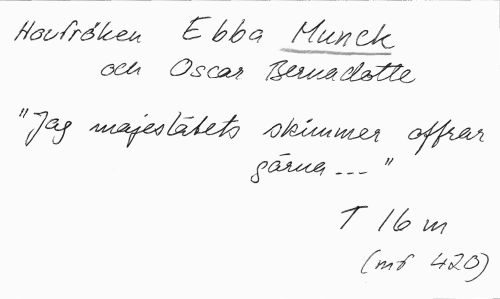 Hovfröken Ebba Munck
och Oscar Bernadotte
"Jag majestätets skimmer offrar
gärna --- "
T 16 m
(mf 420)